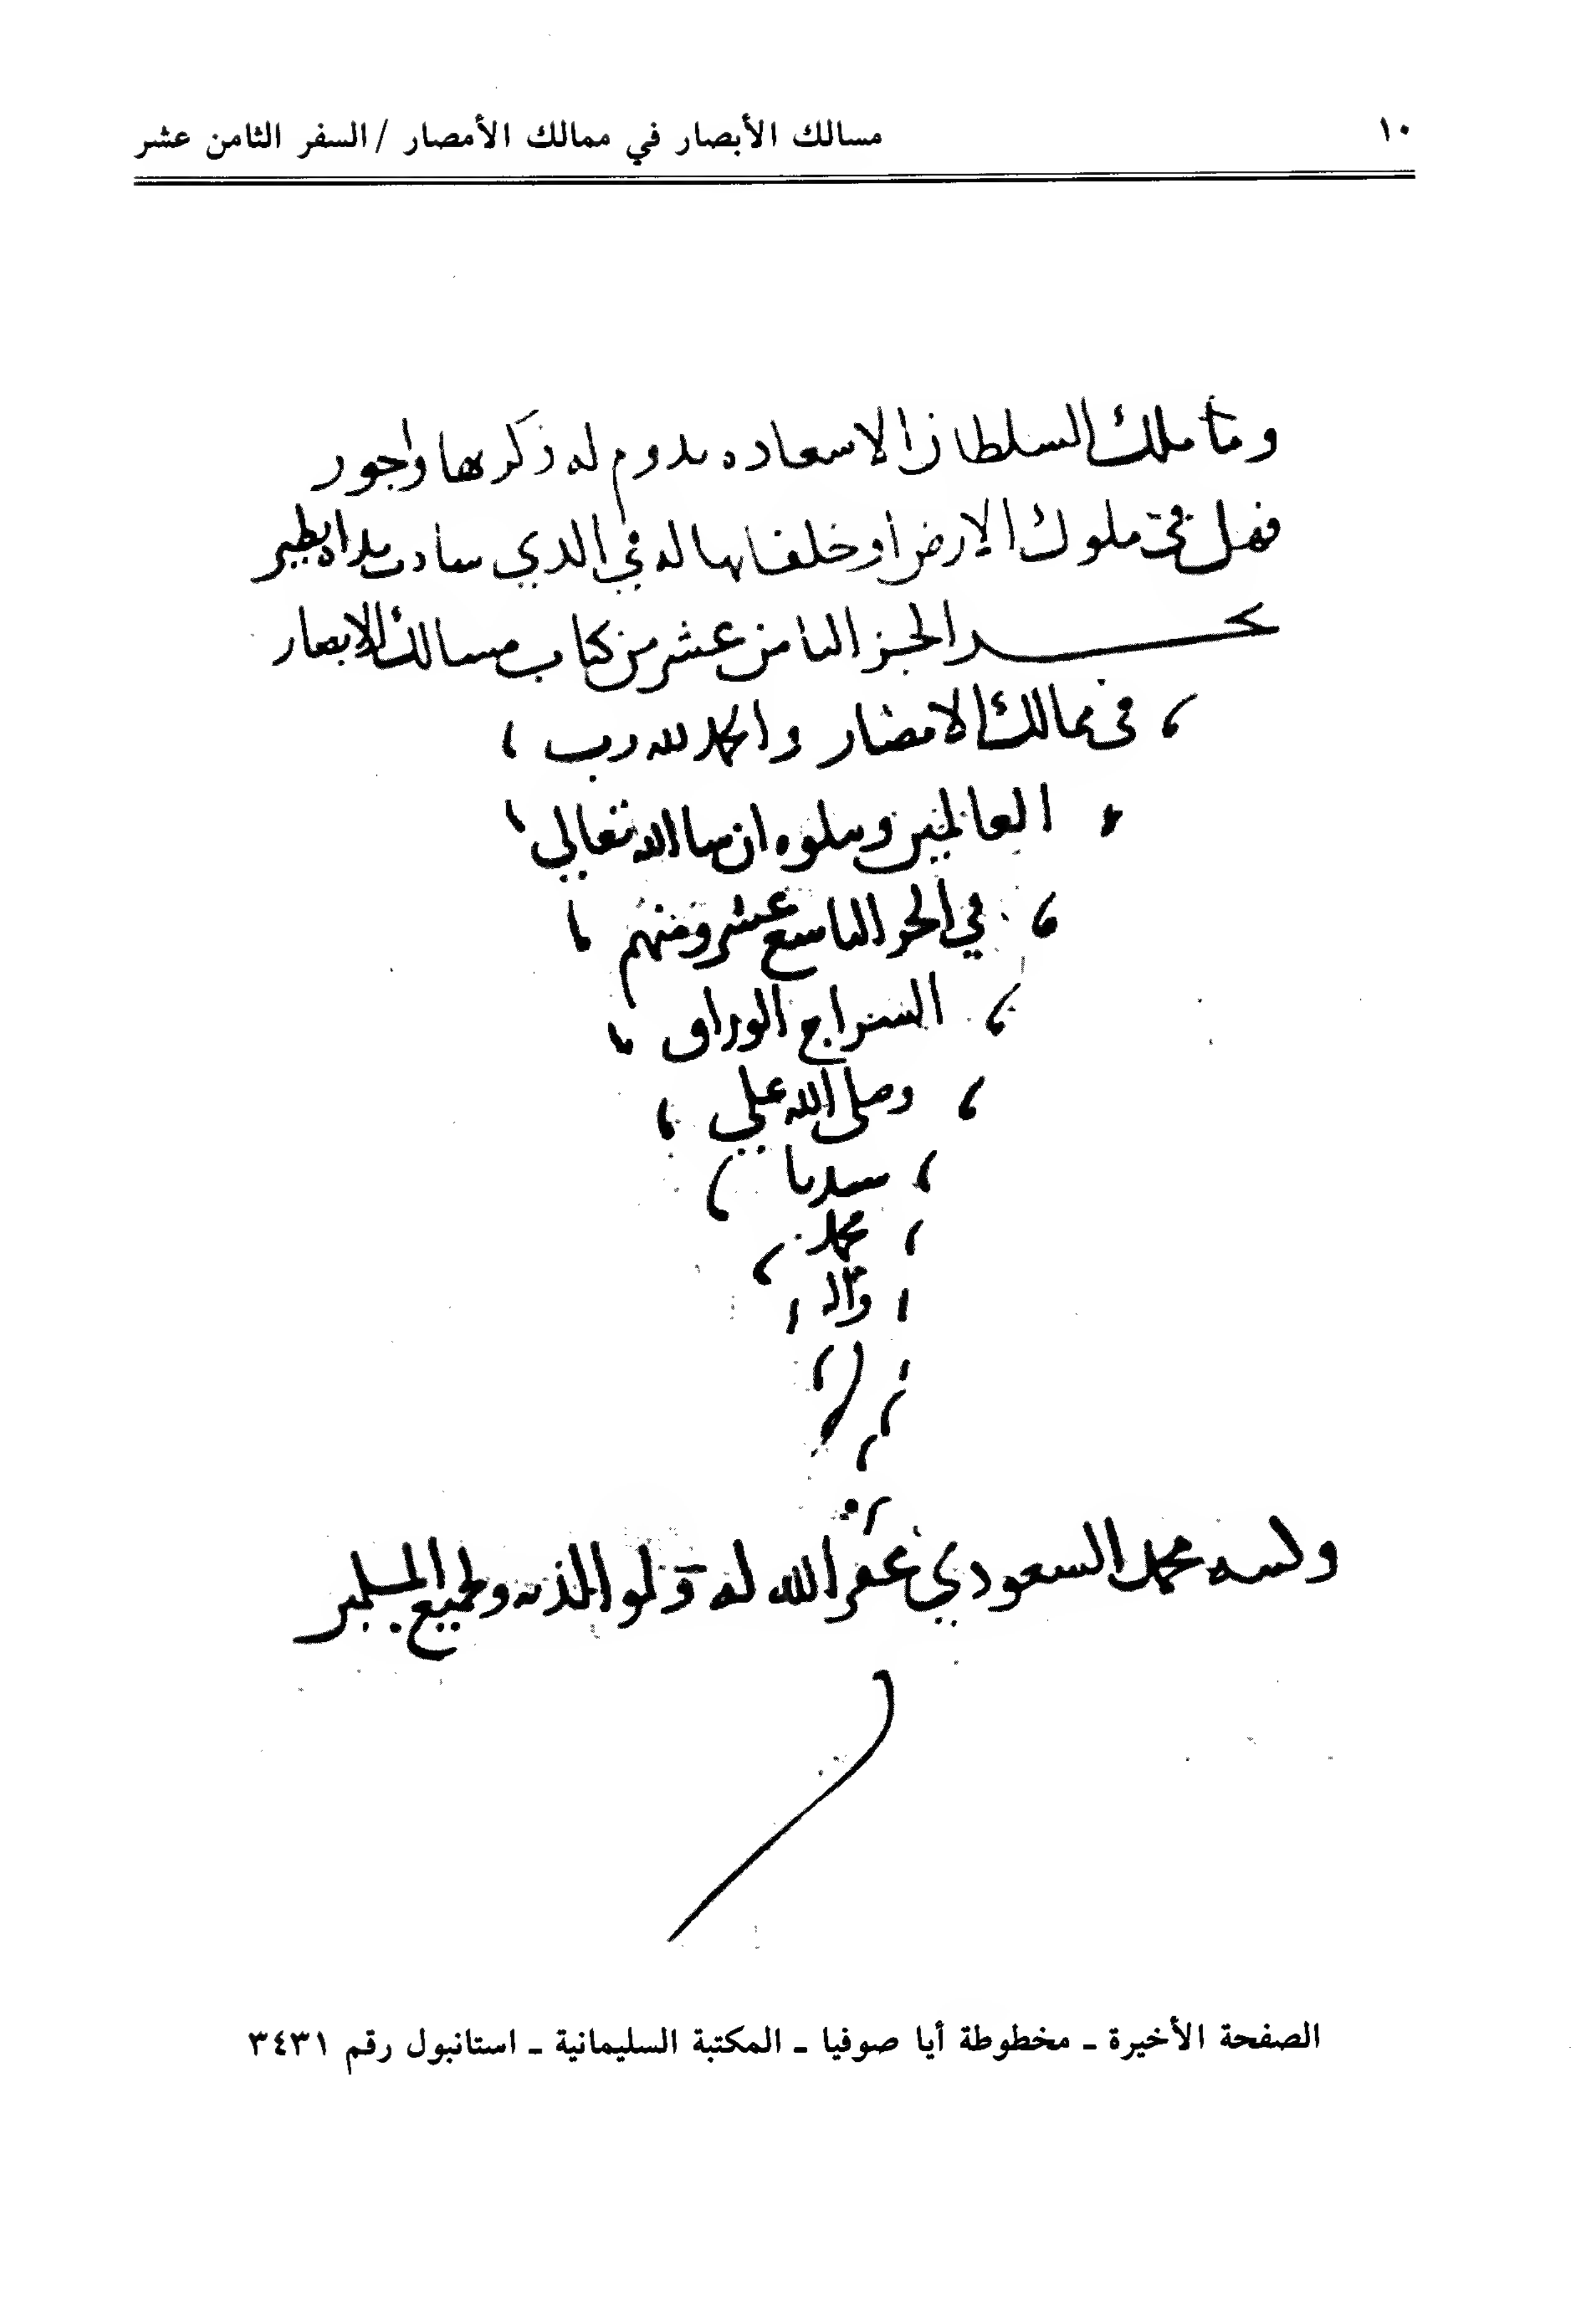 ١٠
مسالك الأبصار في ممالك الأمصار / السفر الثامن عشر
وما ملك السلطان الا سعاده يدوم له ذكر بها واجور
فهل في ملوك الارض او خلفايها له في الذي سادت يداه نظير
نجـــــــز الجز الثامن عشر من كتاب مسالك الابصار
في ممالك الامصار والحمد لله رب
العالمين ويتلوه ان شا الله تعالى
في الجز التاسع عشر ومنهم
السراج الوراق
وصلى الله علي
سيدنا
محمد
وآله
محمد السعودي غفر الله له ولوالديه ولجميع المسلمين
الصفحة الأخيرة ـ مخطوطة أيا صوفيا ـ المكتبة السليمانية ـ استانبول رقم ٣٤٣١